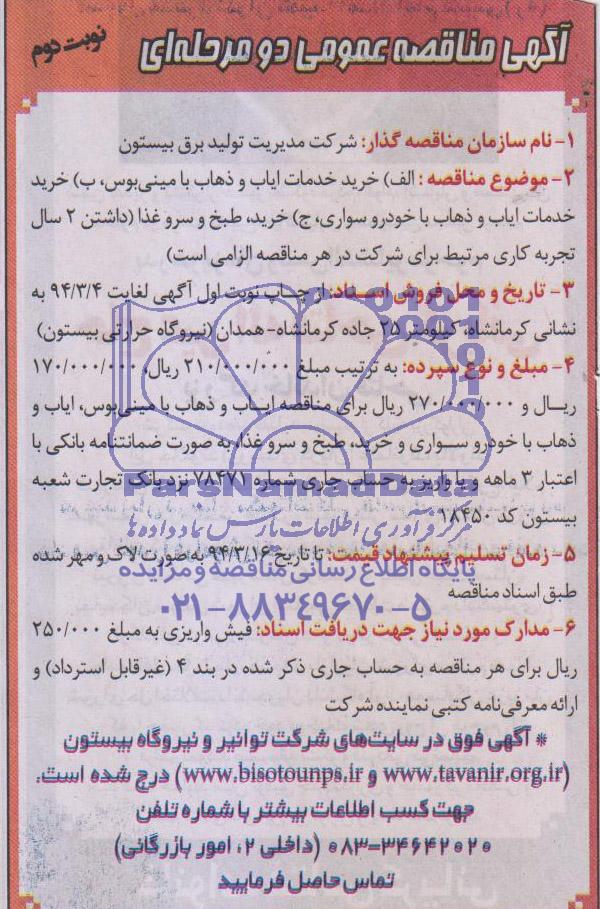 آگهی مناقصه عمومی دو مرحله‌ای
نوبت دوم
۱- نام سازمان مناقصه گذار: شرکت مدیریت تولید برق بیستون
۲- موضوع مناقصه : الف) خرید خدمات ایاب و ذهاب با مینی‌بوس، ب) خرید
خدمات ایاب و ذهاب با خودرو سواری، ج) خرید، طبخ و سرو غذا (داشتن ۲ سال
تجربه کاری مرتبط برای شرکت در هر مناقصه الزامی است)
۳- تاریخ و محل فروش اسناد: از چاپ نوبت اول آگهی لغایت ۹۴/۳/۴ به
نشانی کرمانشاه، کیلومتر ۲۵ جاده کرمانشاه- همدان (نیروگاه حرارتی بیستون)
۴- مبلغ و نوع سپرده: به ترتیب مبلغ ۲۱۰/۰۰۰/۰۰۰ ریال، ۱۷۰/۰۰۰/۰۰۰
ریال و ۲۷۰/۰۰۰/۰۰۰ ریال برای مناقصه ایاب و ذهاب با مینی‌بوس، ایاب و
ذهاب با خودرو سواری و خرید، طبخ و سرو غذا، به صورت ضمانتنامه بانکی با
اعتبار ۳ ماهه و یا واریز به حساب جاری شماره ۷۸۴۷۱ نزد بانک تجارت شعبه
بیستون کد ۱۸۴۵۰
۵- زمان تسلیم پیشنهاد قیمت: تا تاریخ ۹۴/۳/۱۶ به صورت لاک و مهر شده
طبق اسناد مناقصه
۶- مدارک مورد نیاز جهت دریافت اسناد: فیش واریزی به مبلغ ۲۵۰/۰۰۰
ریال برای هر مناقصه به حساب جاری ذکر شده در بند ۴ (غیرقابل استرداد) و
ارائه معرفی‌نامه کتبی نماینده شرکت
* آگهی فوق در سایت‌های شرکت توانیر و نیروگاه بیستون
(www.tavanir.org.ir و www.bisotounps.ir) درج شده است.
جهت کسب اطلاعات بیشتر با شماره تلفن
۰۸۳-۳۴۶۴۲۰۲۰ (داخلی ۲، امور بازرگانی)
تماس حاصل فرمایید
ParsNamadData
مرکز فرآوری اطلاعات پارس نماد داده ها
پایگاه اطلاع رسانی مناقصه و مزایده
۰۲۱-۸۸۳۴۹۶۷۰-۵